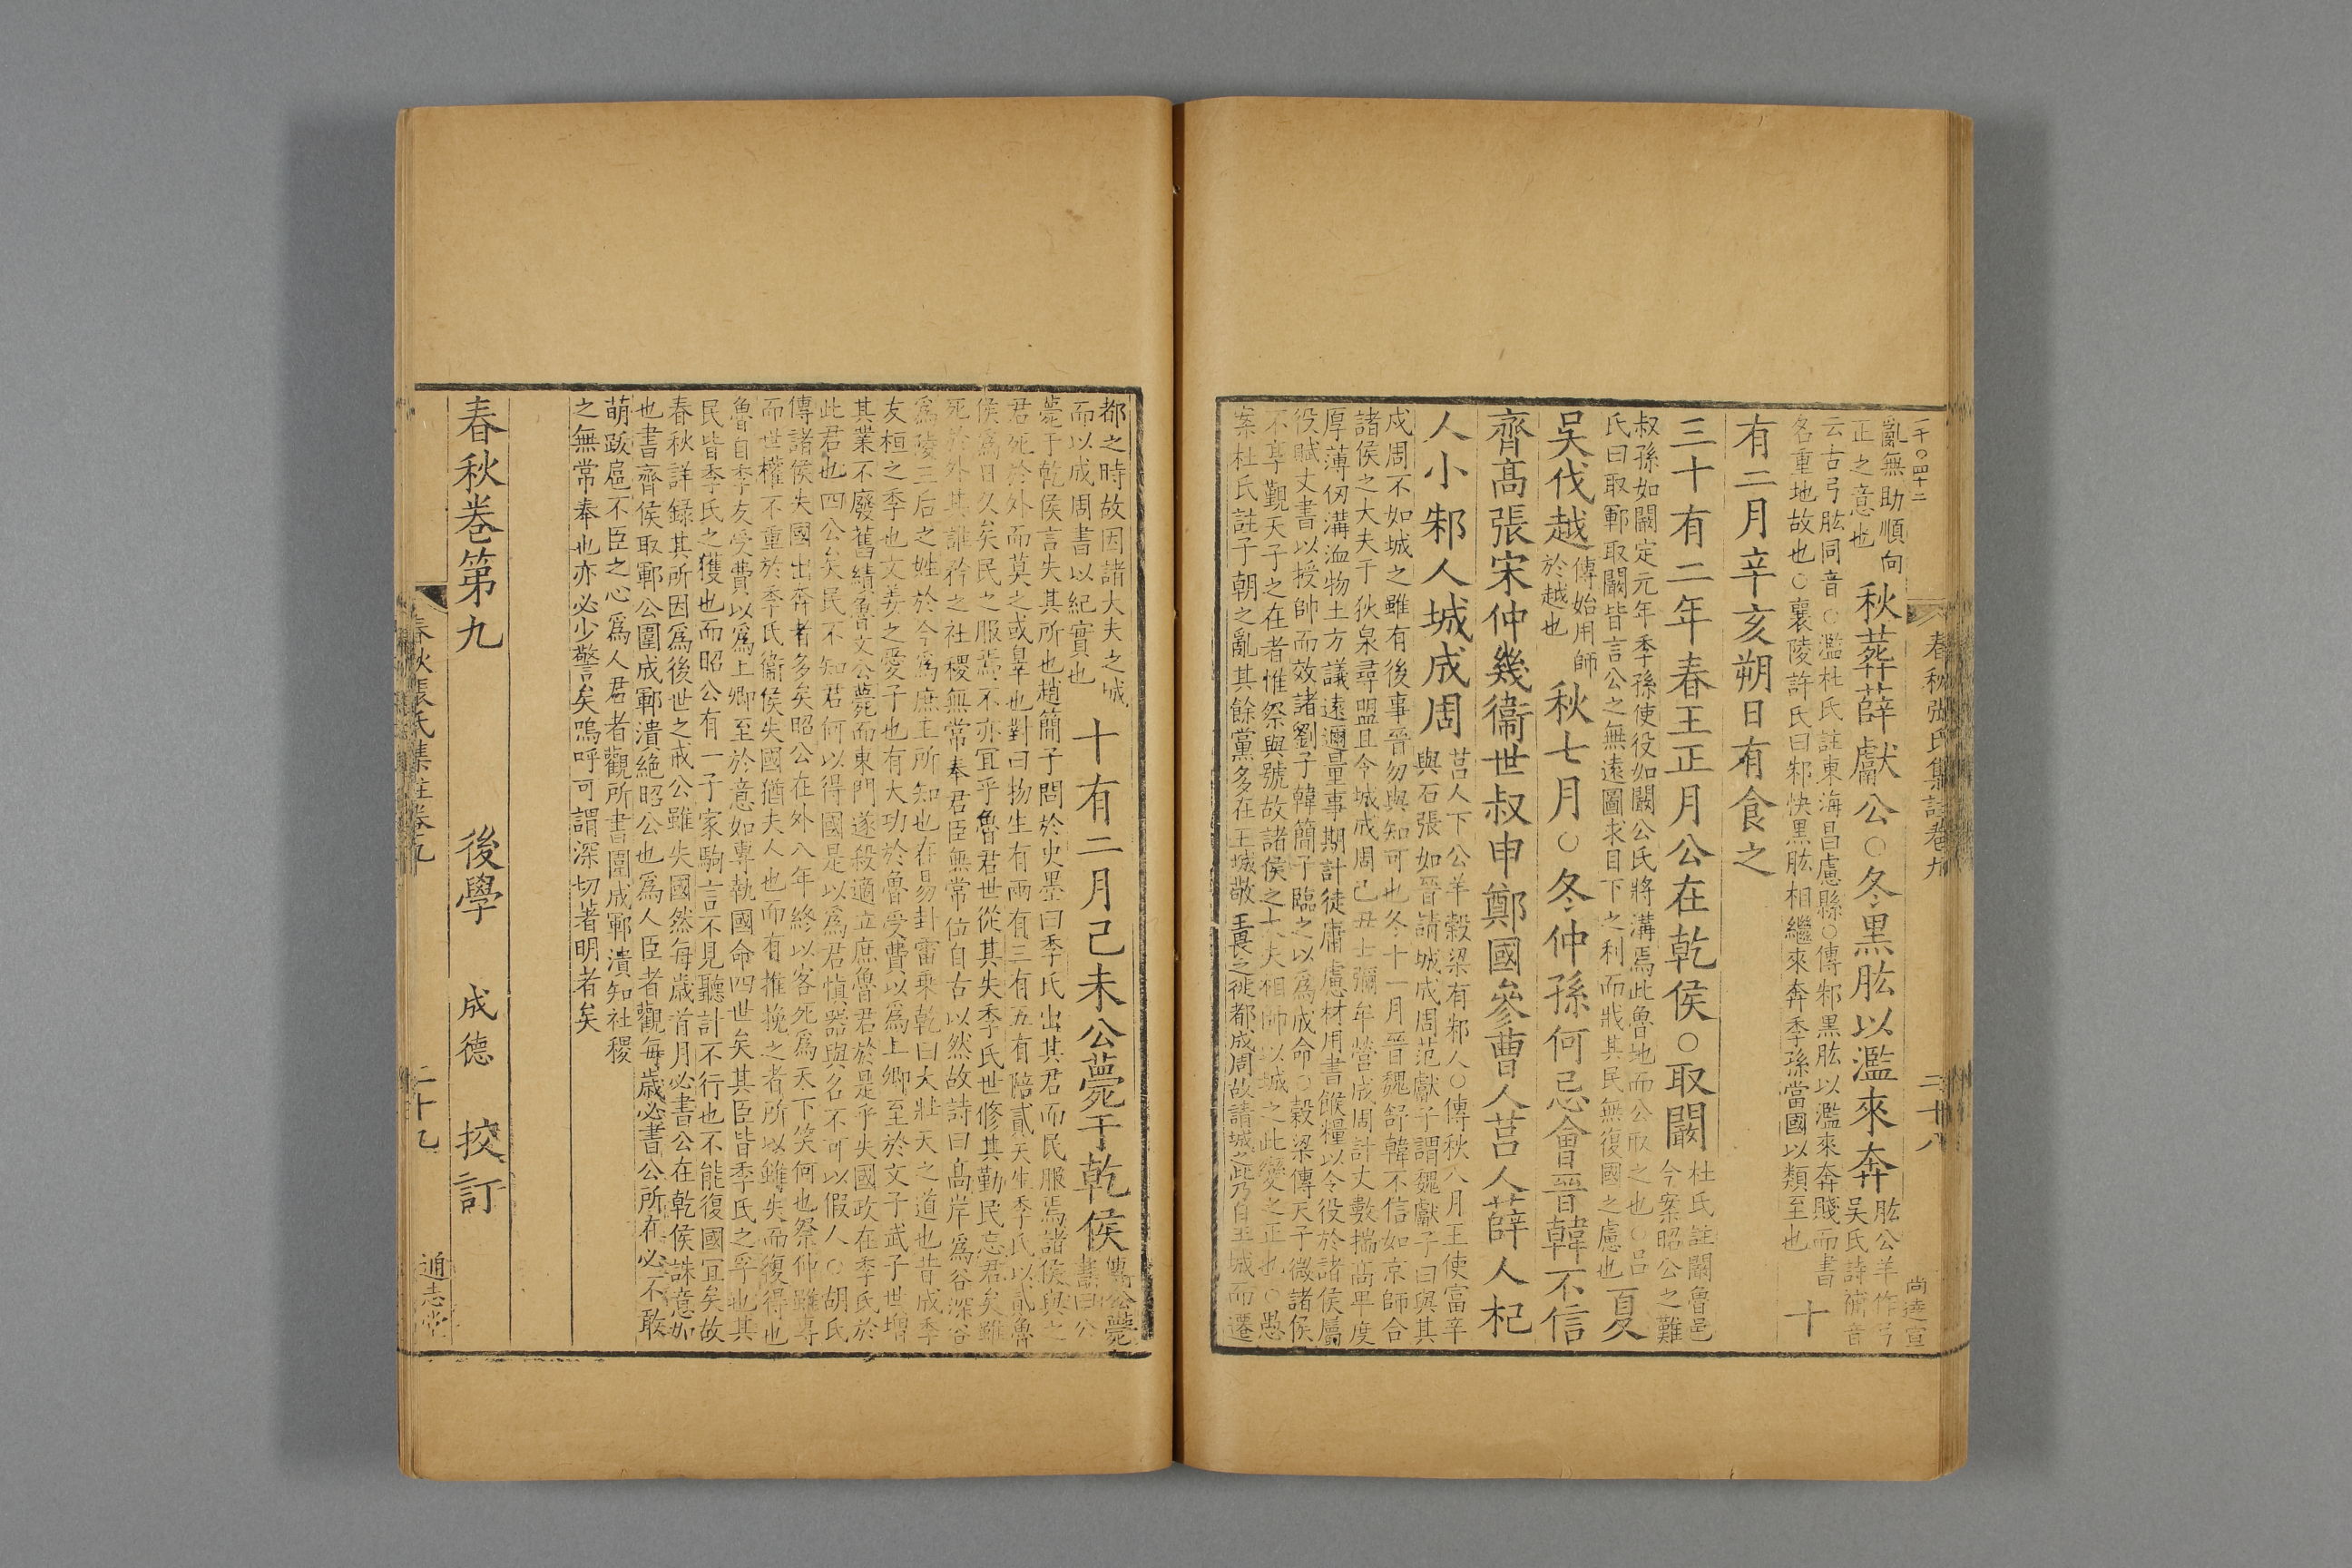 二千〇四十二
春秋張氏集註卷九
二十八
尚達宣
亂無助順向
正之意也
秋葬薛獻公○冬黑肱以濫來奔
肱公羊作弓
吳氏詩補音
云古弓肱同音○濫杜氏註東海昌慮縣○傳邾黑肱以濫來奔賤而書
名重地故也○襄陵許氏曰邾快黑肱相繼來奔季孫當國以類至也
十
有二月辛亥朔日有食之
三十有二年春王正月公在乾侯○取闞
杜氏註闞魯邑
今案昭公之難
叔孫如闞定元年季孫使役如闞公氏將溝焉此魯地而公取之也○呂
氏曰取鄆取闞皆言公之無遠圖求目下之利而戕其民無復國之慮也
夏
吳伐越
傳始用師
於越也
秋七月○冬仲孫何忌會晉韓不信
齊高張宋仲幾衞世叔申鄭國參曹人莒人薛人杞
人小邾人城成周
莒人下公羊穀梁有邾人○傳秋八月王使富辛
與石張如晉請城成周范獻子謂魏獻子曰與其
戍周不如城之雖有後事晉勿與知可也冬十一月晉魏舒韓不信如京師合
諸侯之大夫于狄泉尋盟且令城成周己丑士彌牟營成周計丈數揣高卑度
厚薄仞溝洫物土方議遠邇量事期計徒庸慮材用書餱糧以令役於諸侯屬
役賦丈書以授帥而效諸劉子韓簡子臨之以爲成命○穀梁傳天子微諸侯
不享覲天子之在者惟祭與號故諸侯之大夫相帥以城之此變之正也○愚
案杜氏註子朝之亂其餘黨多在王城敬王畏之徙都成周故請城之此乃自王城而遷
都之時故因諸大夫之城
而以成周書以紀實也
十有二月己未公薨于乾侯
傳公薨
書曰公
薨于乾侯言失其所也趙簡子問於史墨曰季氏出其君而民服焉諸侯與之
君死於外而莫之或辠也對曰物生有兩有三有五有陪貳天生季氏以貳魯
侯爲日久矣民之服焉不亦宜乎魯君世從其失季氏世修其勤民忘君矣雖
死於外其誰矜之社稷無常奉君臣無常位自古以然故詩曰高岸爲谷深谷
爲陵三后之姓於今爲庶主所知也在易卦雷乘乾曰大壯天之道也昔成季
友桓之季也文姜之愛子也有大功於魯受費以爲上卿至於文子武子世增
其業不廢舊績魯文公薨而東門遂殺適立庶魯君於是乎失國政在季氏於
此君也四公矣民不知君何以得國是以爲君愼器與名不可以假人○胡氏
傳諸侯失國出奔者多矣昭公在外八年終以客死爲天下笑何也祭仲雖專
而世權不重於季氏衞侯失國猶夫人也而有推挽之者所以雖失而復得也
魯自季友受費以爲上卿至於意如專執國命四世矣其臣皆季氏之孚也其
民皆季氏之獲也而昭公有一子家駒言不見聽計不行也不能復國宜矣故
春秋詳錄其所因爲後世之戒公雖失國然每歲首月必書公在乾侯誅意如
也書齊侯取鄆公圍成鄆潰絶昭公也爲人臣者觀每歲必書公所在必不敢
萌跋扈不臣之心爲人君者觀所書圍成鄆潰知社稷
之無常奉也亦必少警矣嗚呼可謂深切著明者矣
春秋卷第九
後學 成德 挍訂
春秋張氏集註卷九
二十九
通志堂